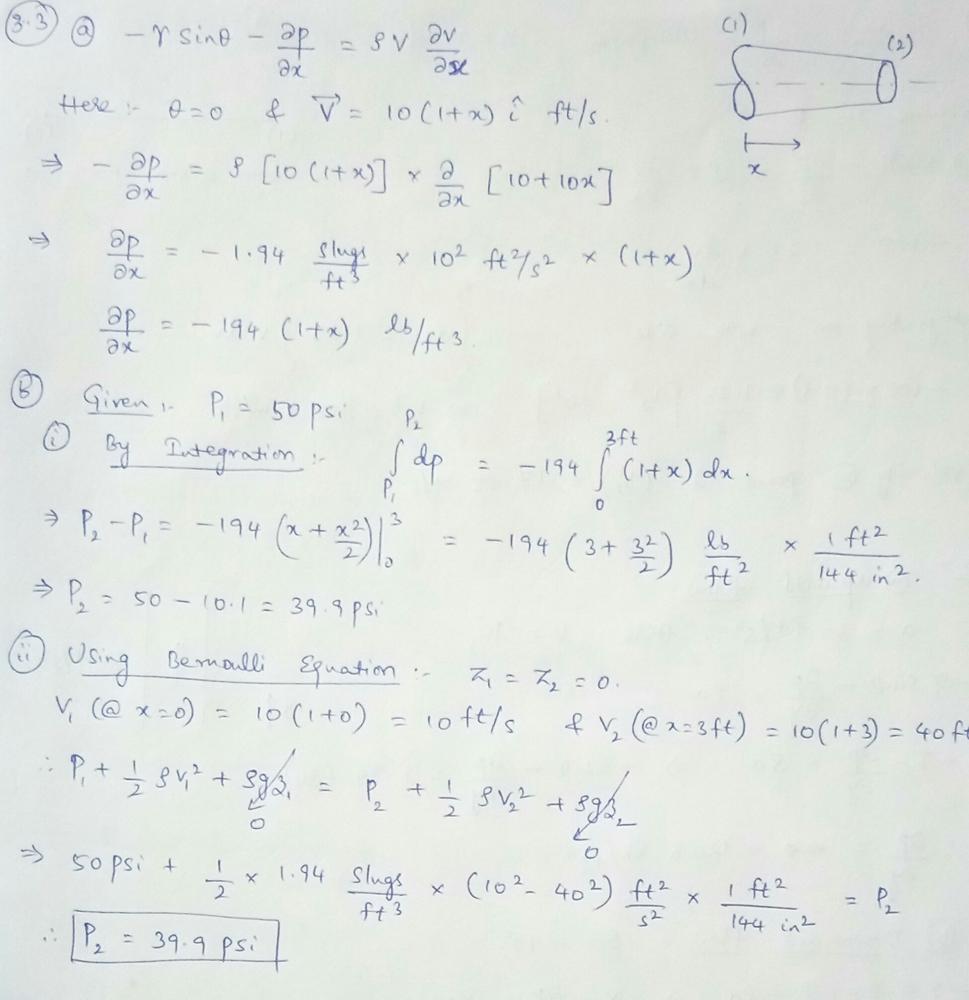 3.3 (a) -γ sinθ - ∂p/∂x = ρV ∂v/∂x
(1) (2)
x
Here :- θ=0 & V⃗ = 10(1+x) î ft/s.
⇒ - ∂p/∂x = ρ [10(1+x)] × ∂/∂x [10+10x]
⇒ ∂p/∂x = -1.94 slugs/ft³ × 10² ft²/s² × (1+x)
∂p/∂x = -194 (1+x) lb/ft³.
(B) Given :- P₁ = 50 psi
(i) By Integration :- ∫_{P₁}^{P₂} dp = -194 ∫_0^{3ft} (1+x) dx.
⇒ P₂-P₁ = -194 (x + x²/2)|₀³ = -194 (3+ 3²/2) lb/ft² × 1 ft²/144 in².
⇒ P₂ = 50 - 10.1 = 39.9 psi
(ii) Using Bernoulli Equation :- Z₁ = Z₂ = 0.
V₁ (@ x=0) = 10(1+0) = 10 ft/s & V₂ (@ x=3ft) = 10(1+3) = 40 ft
∴ P₁ + 1/2 ρV₁² + ρgz₁ = P₂ + 1/2 ρV₂² + ρgz₂
0 0
⇒ 50 psi + 1/2 × 1.94 slugs/ft³ × (10² - 40²) ft²/s² × 1 ft²/144 in² = P₂
∴ P₂ = 39.9 psi